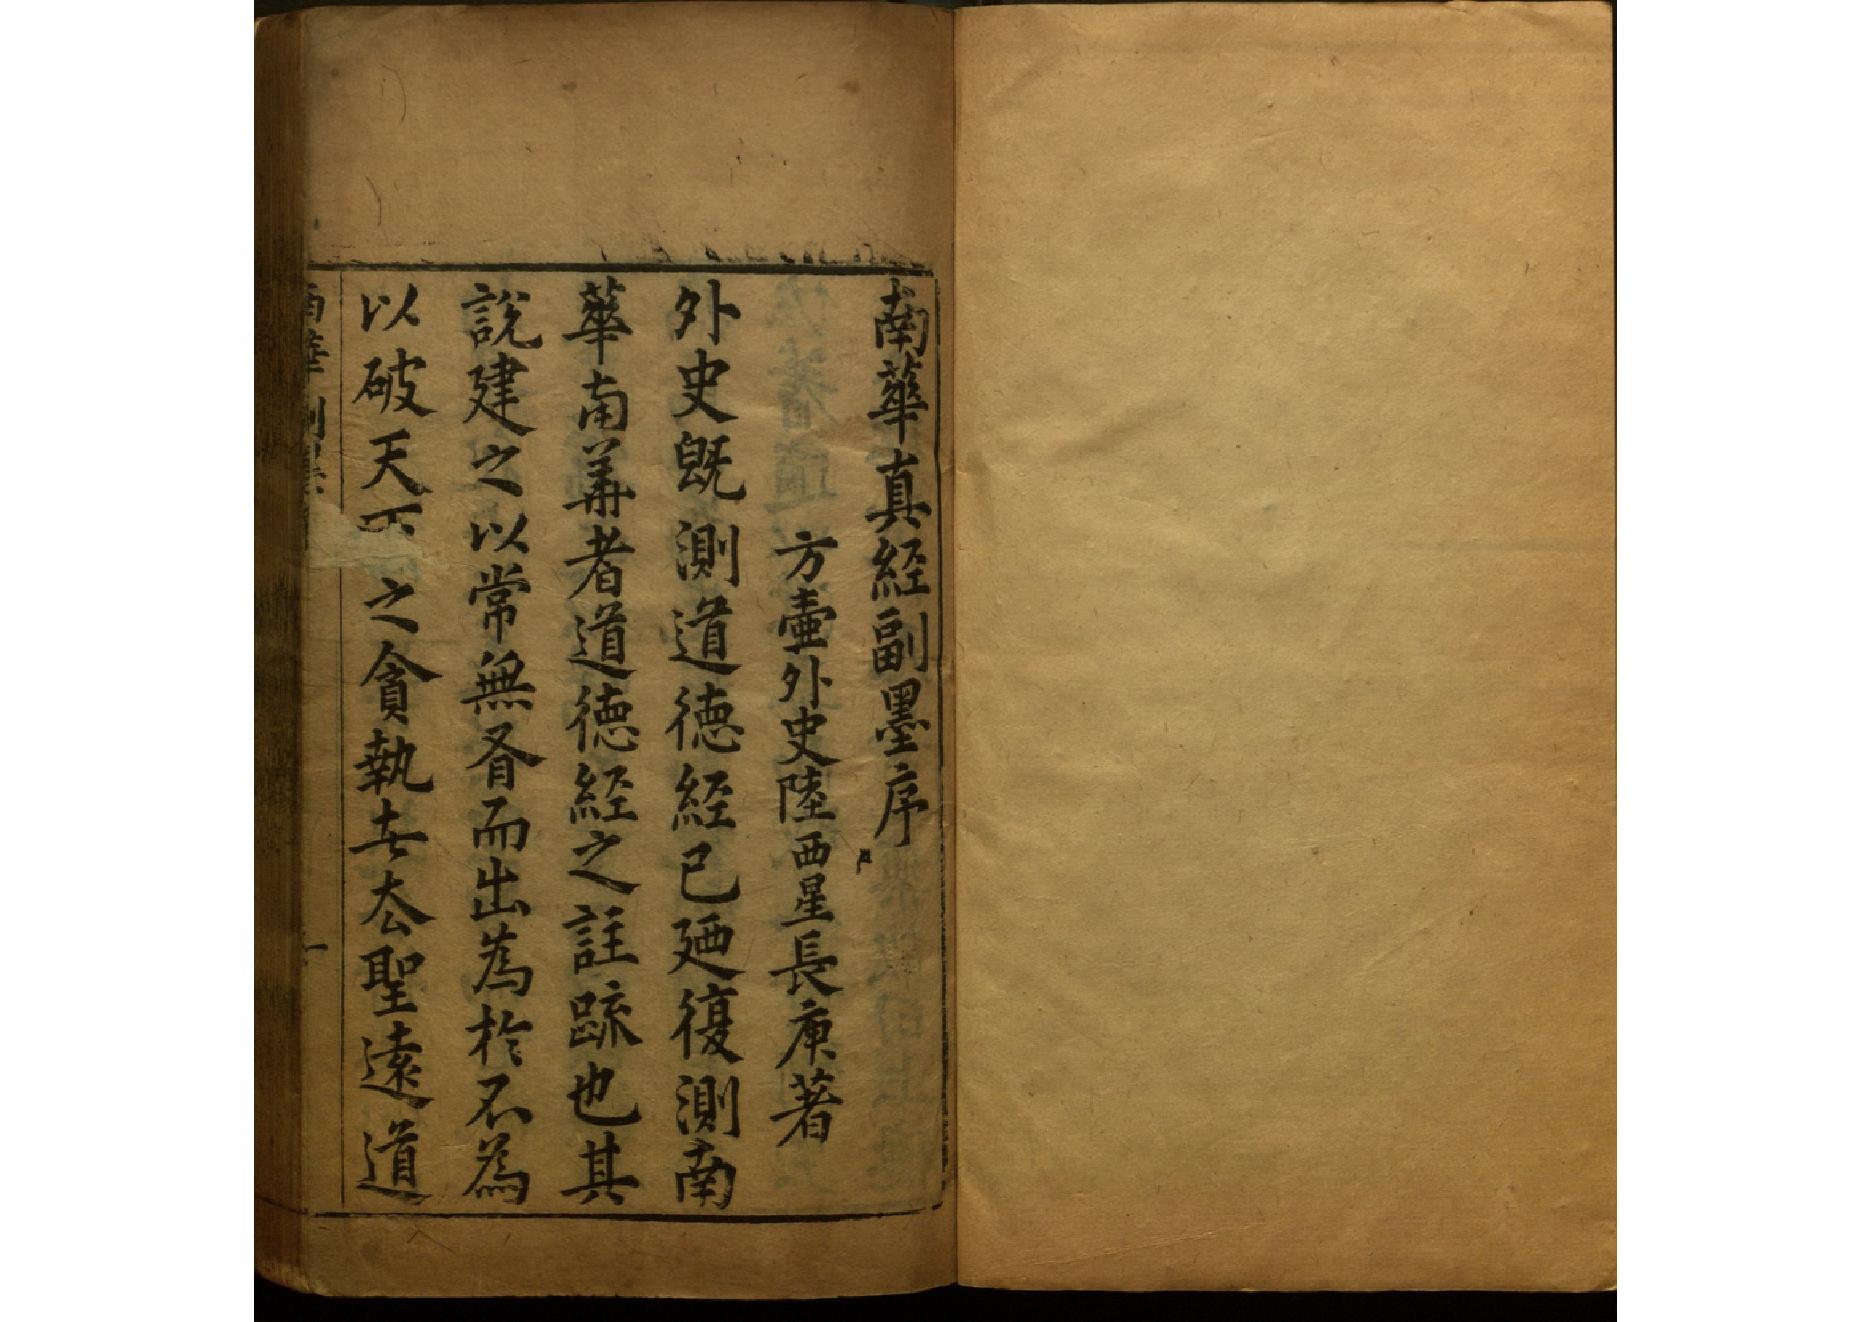 南華真經副墨序
方壺外史陸西星長庚著
外史既測道德經已廼復測南
華南華者道德經之註䟽也其
說建之以常無有而出為於不為
以破天下之貪執去太聖遠道
南華副墨
一